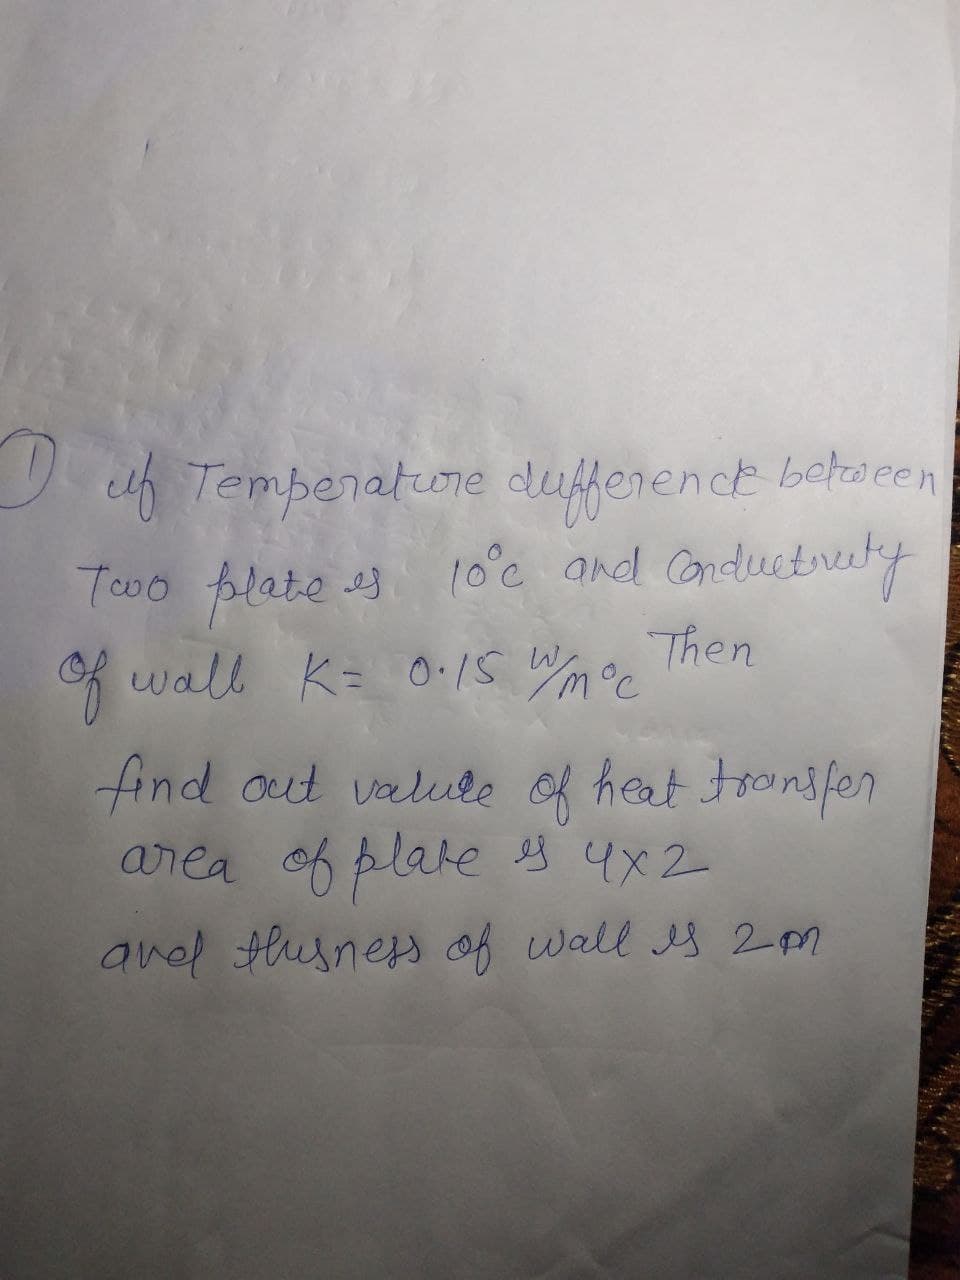 1 if Temperature difference between
Two plate is 10°c and Conductivity
of wall K= 0.15 W/m°c Then
find out value of heat transfer
area of plate is 4x2
and thisness of wall is 2m